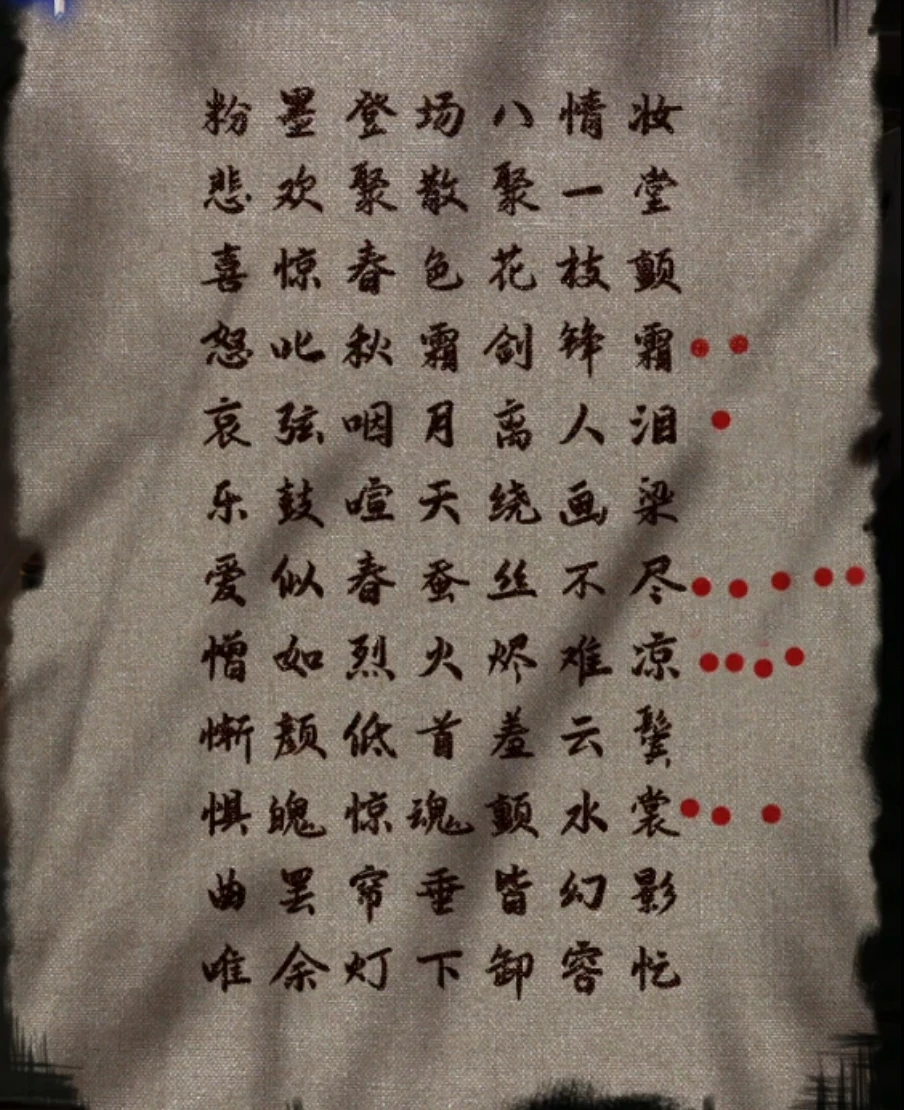 粉墨登场八情妆
悲欢聚散聚一堂
喜惊春色花枝颤
怒叱秋霜剑锋霜
哀弦咽月离人泪
乐鼓喧天绕画梁
爱似春蚕丝不尽
憎如烈火烬难凉
惭颜低首羞云鬓
惧魄惊魂颤水裳
曲罢帘垂皆幻影
唯余灯下卸容忙